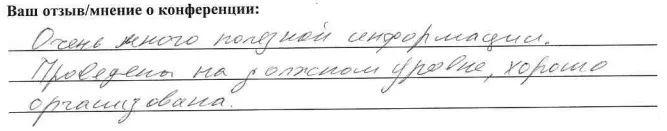 Ваш отзыв/мнение о конференции:
Очень много полезной информации.
Проведены на должном уровне, хорошо
организована.